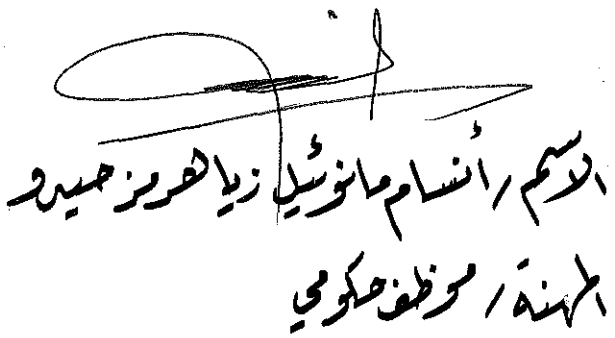 الاسم / أنسام مانوئيل زيا هرمز حيدو
المهنة / موظف حكومي